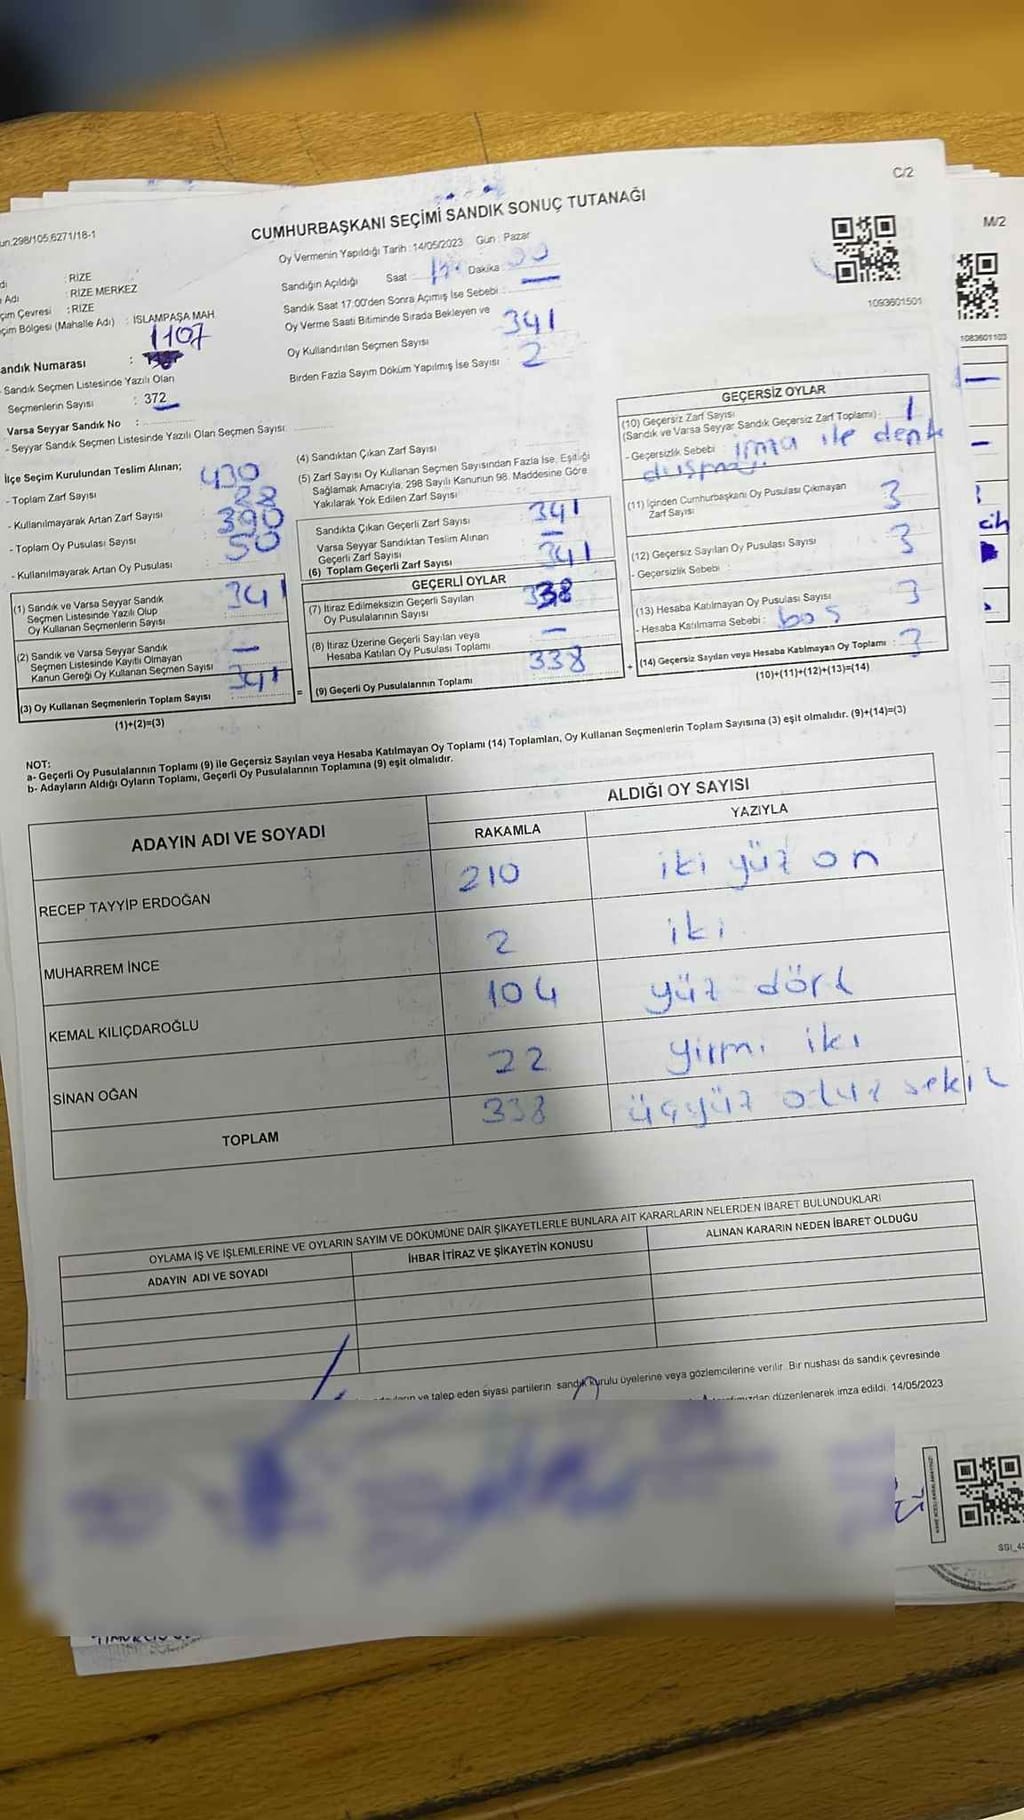 C/2
un.298/105,6271/18-1
CUMHURBAŞKANI SEÇİMİ SANDIK SONUÇ TUTANAĞI
M/2
Oy Vermenin Yapıldığı Tarih : 14/05/2023 Gün : Pazar
: RİZE
Adı : RİZE MERKEZ
çim Çevresi : RİZE
çim Bölgesi (Mahalle Adı) : İSLAMPAŞA MAH
1107
andık Numarası :
Sandık Seçmen Listesinde Yazılı Olan
Seçmenlerin Sayısı : 372
Varsa Seyyar Sandık No :
- Seyyar Sandık Seçmen Listesinde Yazılı Olan Seçmen Sayısı:
Sandığın Açıldığı Saat : Dakika :
Sandık Saat 17.00'den Sonra Açımış İse Sebebi : —
Oy Verme Saati Bitiminde Sırada Bekleyen ve
Oy Kullandırılan Seçmen Sayısı 341
Birden Fazla Sayım Döküm Yapılmış İse Sayısı : 2
1093601501
1083601103
İlçe Seçim Kurulundan Teslim Alınan;
- Toplam Zarf Sayısı 430
- Kullanılmayarak Artan Zarf Sayısı
- Toplam Oy Pusulası Sayısı 390
- Kullanılmayarak Artan Oy Pusulası 50
(1) Sandık ve Varsa Seyyar Sandık
Seçmen Listesinde Yazılı Olup
Oy Kullanan Seçmenlerin Sayısı 341
(2) Sandık ve Varsa Seyyar Sandık
Seçmen Listesinde Kayıtlı Olmayan
Kanun Gereği Oy Kullanan Seçmen Sayısı —
(3) Oy Kullanan Seçmenlerin Toplam Sayısı 341 =
(1)+(2)=(3)
(4) Sandıktan Çıkan Zarf Sayısı
(5) Zarf Sayısı Oy Kullanan Seçmen Sayısından Fazla İse, Eşitliği
Sağlamak Amacıyla, 298 Sayılı Kanunun 98. Maddesine Göre
Yakılarak Yok Edilen Zarf Sayısı
Sandıkta Çıkan Geçerli Zarf Sayısı 341
Varsa Seyyar Sandıktan Teslim Alınan
Geçerli Zarf Sayısı —
(6) Toplam Geçerli Zarf Sayısı 341
GEÇERLİ OYLAR
(7) İtiraz Edilmeksizin Geçerli Sayılan
Oy Pusulalarının Sayısı 338
(8) İtiraz Üzerine Geçerli Sayılan veya
Hesaba Katılan Oy Pusulası Toplamı —
(9) Geçerli Oy Pusulalarının Toplamı 338 +
GEÇERSİZ OYLAR
(10) Geçersiz Zarf Sayısı
(Sandık ve Varsa Seyyar Sandık Geçersiz Zarf Toplamı) : 1
- Geçersizlik Sebebi : imza ile denk
(11) İçinden Cumhurbaşkanı Oy Pusulası Çıkmayan
Zarf Sayısı 3
(12) Geçersiz Sayılan Oy Pusulası Sayısı 3
- Geçersizlik Sebebi :
(13) Hesaba Katılmayan Oy Pusulası Sayısı 3
- Hesaba Katılmama Sebebi : boş
(14) Geçersiz Sayılan veya Hesaba Katılmayan Oy Toplamı : 3
(10)+(11)+(12)+(13)=(14)
NOT:
a- Geçerli Oy Pusulalarının Toplamı (9) ile Geçersiz Sayılan veya Hesaba Katılmayan Oy Toplamı (14) Toplamları, Oy Kullanan Seçmenlerin Toplam Sayısına (3) eşit olmalıdır. (9)+(14)=(3)
b- Adayların Aldığı Oyların Toplamı, Geçerli Oy Pusulalarının Toplamına (9) eşit olmalıdır.
ADAYIN ADI VE SOYADI
ALDIĞI OY SAYISI
RAKAMLA YAZIYLA
RECEP TAYYİP ERDOĞAN 210 iki yüz on
MUHARREM İNCE 2 iki
KEMAL KILIÇDAROĞLU 104 yüz dört
SİNAN OĞAN 22 yirmi iki
TOPLAM 338 üçyüz otuz sekiz
OYLAMA İŞ VE İŞLEMLERİNE VE OYLARIN SAYIM VE DÖKÜMÜNE DAİR ŞİKAYETLERLE BUNLARA AİT KARARLARIN NELERDEN İBARET BULUNDUKLARI
ADAYIN ADI VE SOYADI İHBAR İTİRAZ VE ŞİKAYETİN KONUSU ALINAN KARARIN NEDEN İBARET OLDUĞU
ve talep eden siyasi partilerin sandık kurulu üyelerine veya gözlemcilerine verilir. Bir nushası da sandık çevresinde
düzenlenerek imza edildi. 14/05/2023